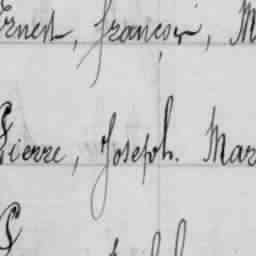 Ernest, François, M
Pierre, Joseph. Mar